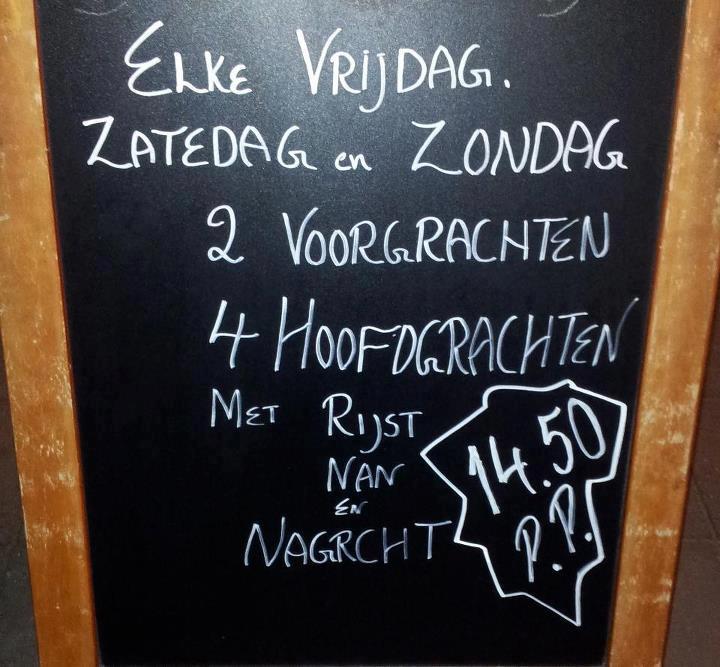 ELKE VRIJDAG.
ZATEDAG en ZONDAG
2 VOORGRACHTEN
4 HOOFDGRACHTEN
MET RIJST
NAN
EN
NAGRCHT
14.50
P.P.